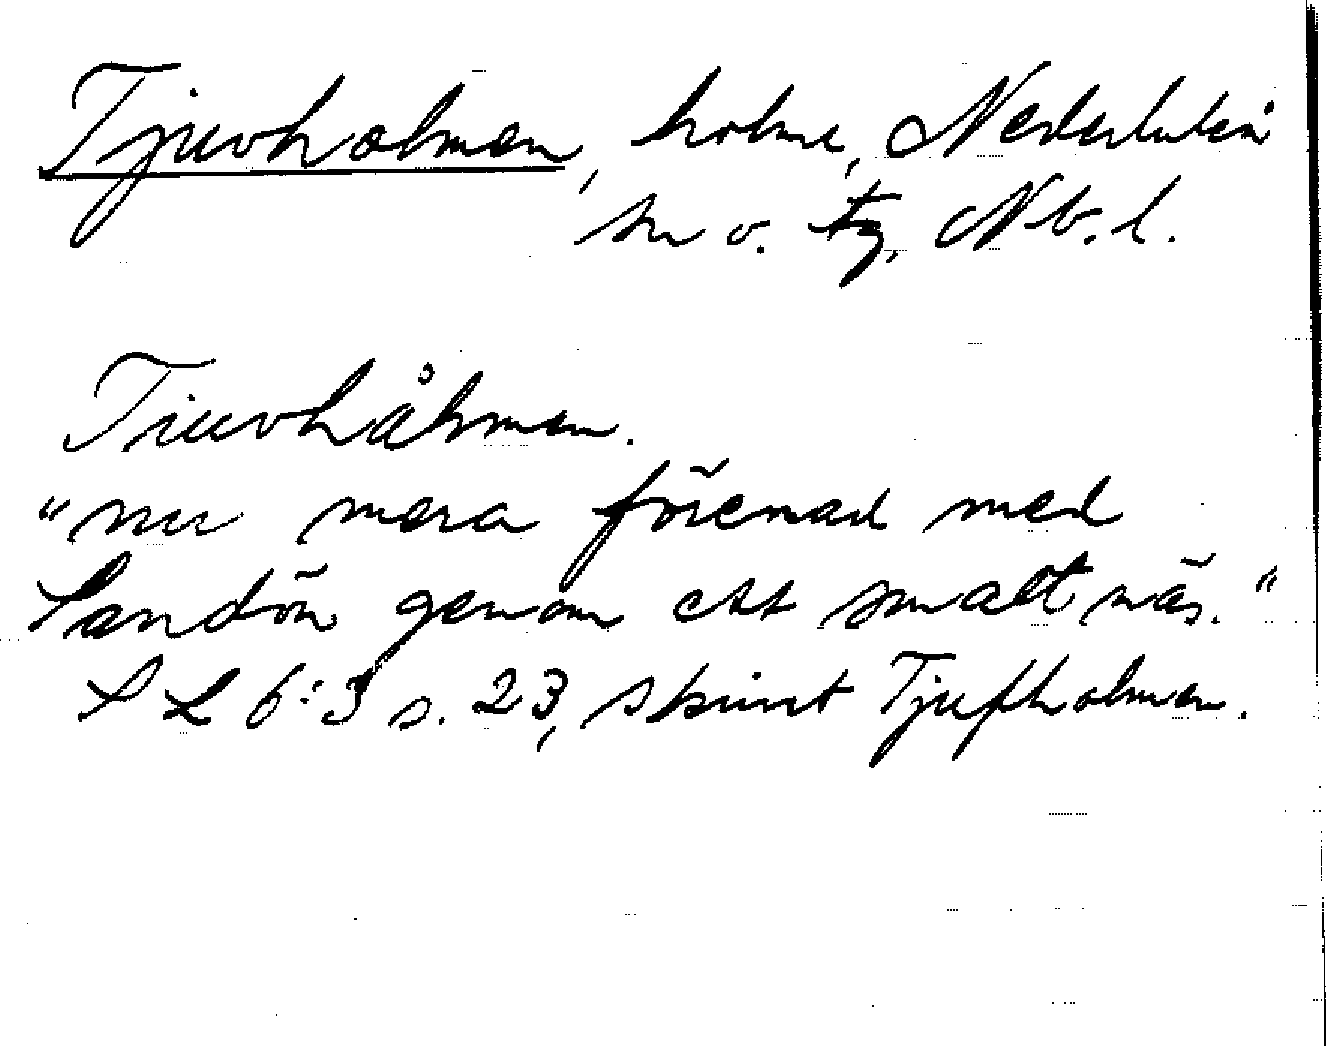 Tjuvholmen, holme, Nederluleå
sn o. tg, Nb. l.
Tiuvhålmen.
"nu mera förenad med
Sandön genom ett smalt näs."
SL 6:3 s. 23, skrivet Tjufholmen.